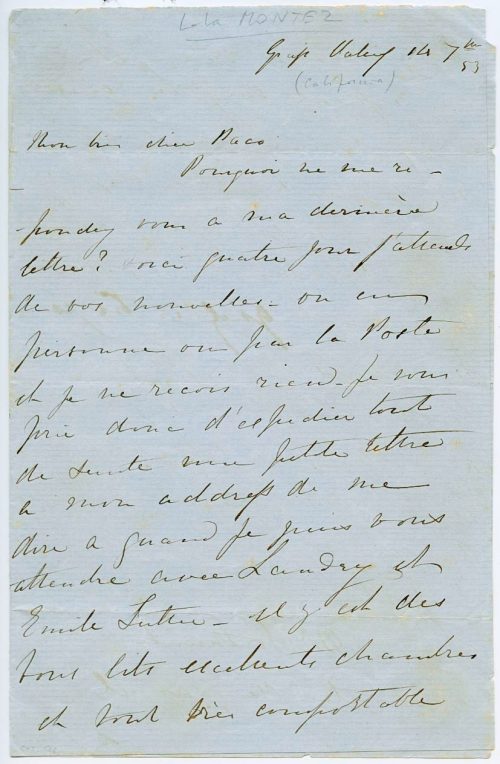 Lola MONTEZ
Grass Valley 14 7
53
(California)
Mon tres cher Paco
Pourquoi ne me re-
-pondez vous a ma dernière
lettre? voici quatre jour j'attends
de vos nouvelles - ou en
personne ou par la Poste
et je ne reçois rien - Je vous
prie donc d'expedier tout
de suite une petite lettre
a mon address de me
dire a quand je puis vous
attendre avec Landry et
Emile Sutter - il y est des
bons lits excellents chambres
et tout très comfortable